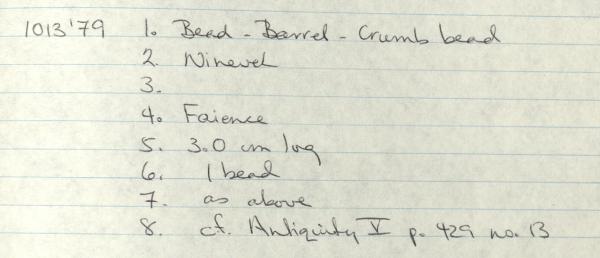 1013'79 1. Bead - Barrel - Crumb bead
2. Nineveh
3.
4. Faience
5. 3.0 cm long
6. 1 bead
7. as above
8. cf. Antiquity V p. 429 no. 13